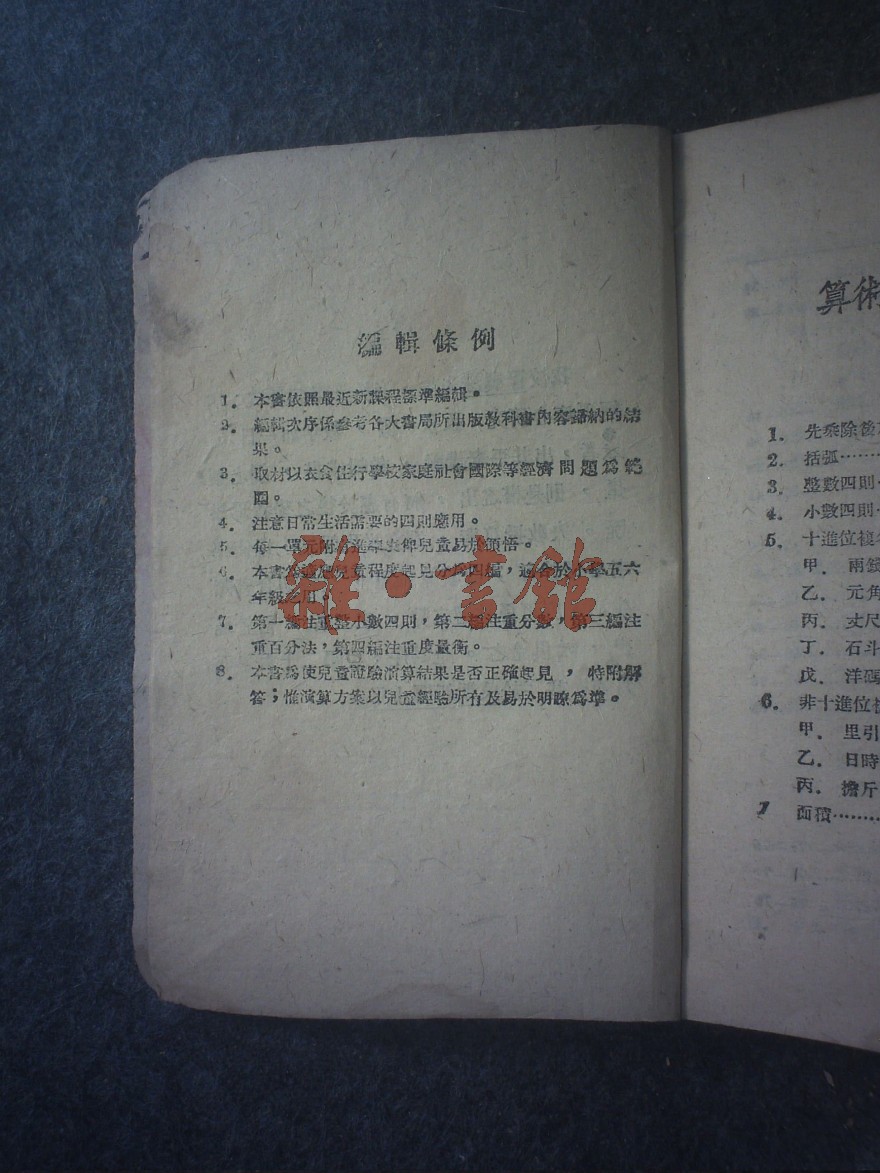 編輯條例
1. 本書依照最近新課程標準編輯。
2. 編輯次序係參考各大書局所出版教科書內容歸納的結
果。
3. 取材以衣食住行學校家庭社會國際等經濟問題爲範
圍。
4. 注意日常生活需要的四則應用。
5. 每一單元附 兒童易於領悟。
6. 本書爲適應兒童程度起見分爲四編，適合於小學五六
年級 用。
7. 第一編注重整小數四則，第二編注重分數，第三編注
重百分法，第四編注重度量衡。
8. 本書爲使兒童證驗演算結果是否正確起見，特附解
答；惟演算方案以兒童經驗所有及易於明瞭爲準。
雜·書館
算術
1. 先乘除後
2. 括弧……
3. 整數四則
4. 小數四則
5. 十進位複
甲. 兩錢
乙. 元角
丙. 丈尺
丁. 石斗
戊. 洋碼
6. 非十進位複
甲. 里引
乙. 日時
丙. 擔斤
7 面積……